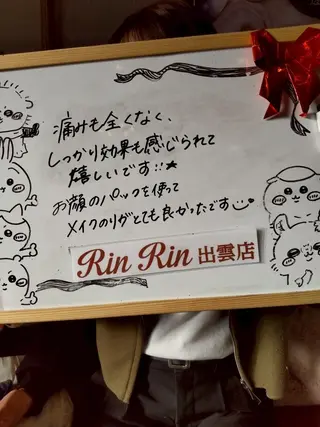 痛みも全くなく、
しっかり効果も感じられて
嬉しいです!!★
お顔のパックを使って
メイクのりがとても良かったです
Rin Rin 出雲店